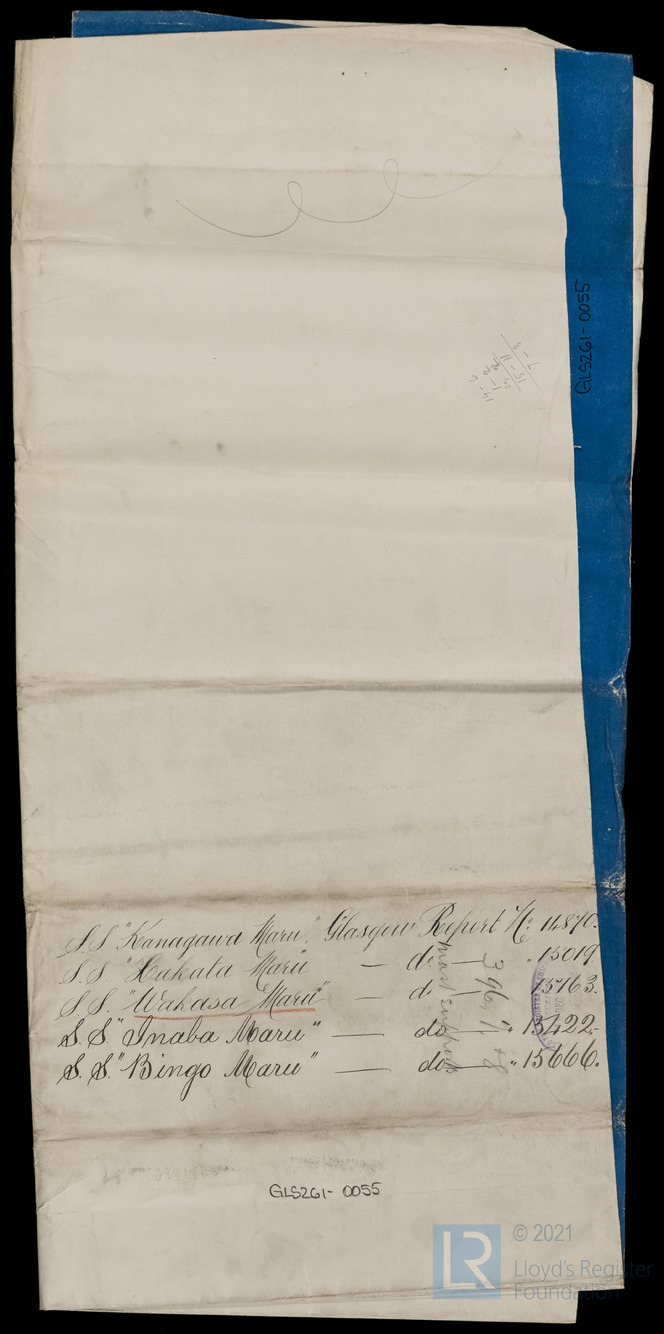 GLS261-0055
S.S "Kanagawa Maru" Glasgow Report No: 14870.
S.S "Hakata Maru — do — " 15019
S.S. "Wakasa Maru" — do — 15163.
S.S. "Inaba Maru" — do — " 15422.
S.S. "Bingo Maru" — do — " 15666.
mast supports
GLS261-0055
© 2021
Lloyd's Register
Foundation
LR